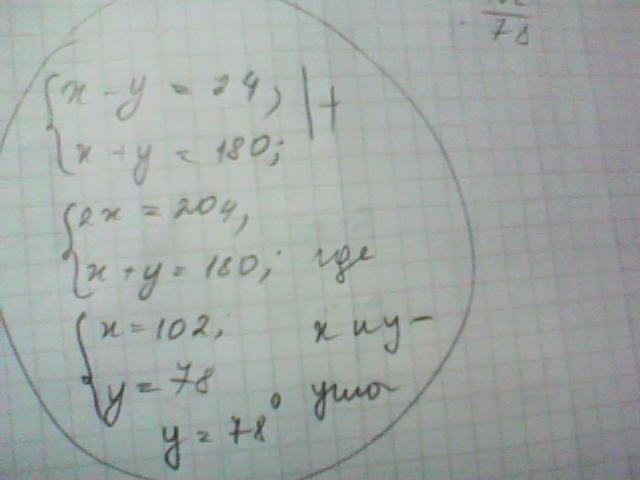 78
x - y = 24, | +
x + y = 180;
2x = 204,
x + y = 180; где
x = 102; x и y -
y = 78 углы
y = 78°